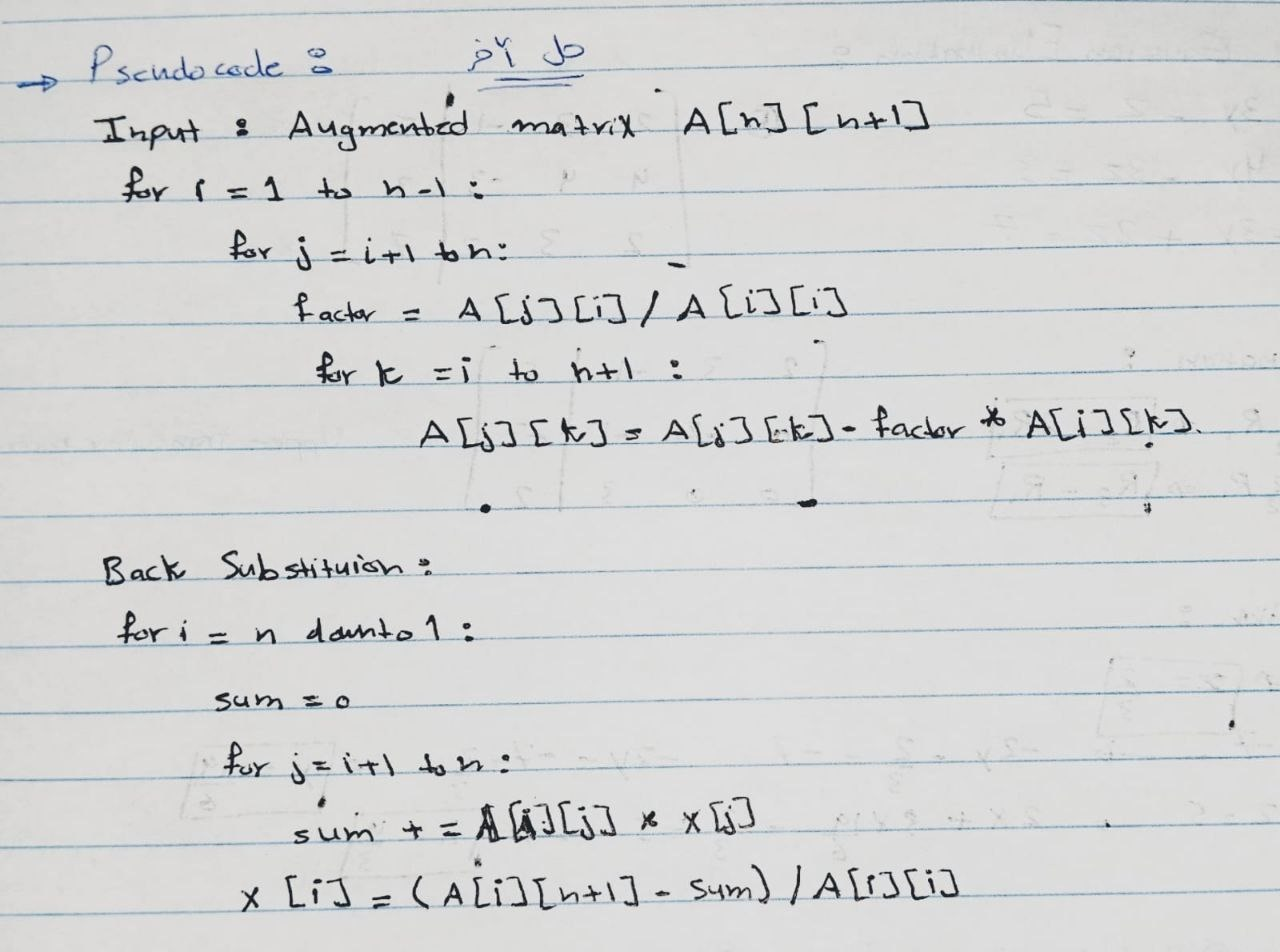 → Pseudocode : حل آخر
Input : Augmented matrix A[n][n+1]
for i = 1 to n-1 :
for j = i+1 to n:
factor = A[j][i] / A[i][i]
for k = i to n+1 :
A[j][k] = A[j][k] - factor * A[i][k].
Back Substituion :
for i = n downto 1 :
sum = 0
for j = i+1 to n :
sum + = A[i][j] * x[j]
x [i] = (A[i][n+1] - sum) / A[i][i]